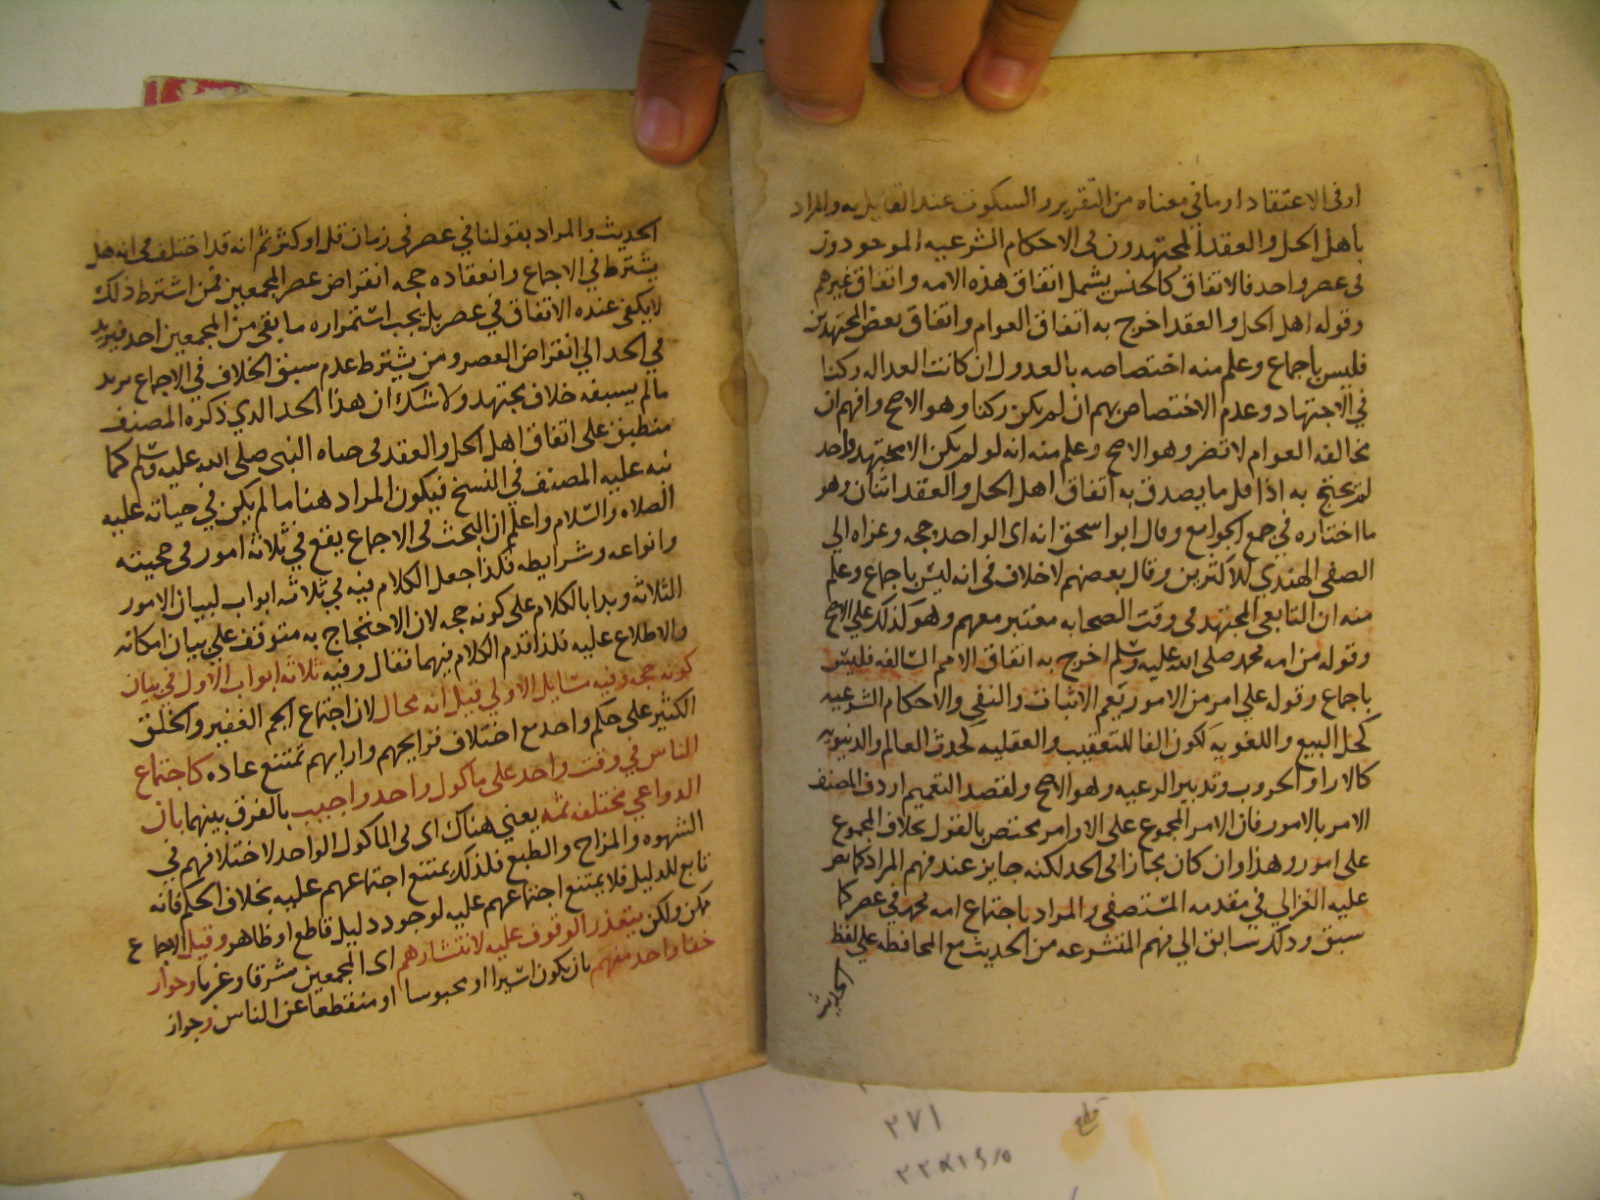 او في الاعتقاد او ما في معناه من التقرير والسكوت عند القايل به والمراد
باهل الحل والعقد المجتهدون في الاحكام الشرعيه الموجودون
في عصر واحد فالاتفاق كالجنس يشمل اتفاق هذه الامه واتفاق غيرهم
وقوله اهل الحل والعقد اخرج به اتفاق العوام واتفاق بعض المجتهدين
فليس باجماع وعلم منه اختصاصه بالعدول ان كانت العداله ركنا
في الاجتهاد وعدم الاختصاص بهم ان لم يكن ركنا وهو الاصح وافهم ان
مخالفه العوام لا تضر وهو الاصح وعلم منه انه لو لم يكن الا مجتهد واحد
لم يحتج به اذ اقل ما يصدق به اتفاق اهل الحل والعقد اثنان وهو
ما اختاره في جمع الجوامع وقال ابو اسحق انه اي الواحد حجه وعزاه الي
الصفي الهندي للاكثرين وقال بعضهم لا خلاف في انه ليس باجماع وعلم
منه ان التابعي المجتهد في وقت الصحابه معتبر معهم وهو كذلك علي الاصح
وقوله من امه محمد صلى الله عليه وسلم اخرج به اتفاق الامم السالفه فليس
باجماع وقوله علي امر من الامور يعم الاثبات والنفي والاحكام الشرعيه
كحل البيع واللغويه ككون الفا للتعقيب والعقليه كحدث العالم والدنيويه
كالارا والحروب وتدبير الرعيه وهو الاصح ولقصد التعميم اردف المصنف
الامر بالامور فان الامر المجموع على الاوامر مختص بالقول بخلاف المجموع
على امور وهذا وان كان مجازا في الحد لكنه جايز عند فهم المراد كما نص
عليه الغزالي في مقدمه المستصفى والمراد باجتماع امه محمد في عصر كما
سبق وذلك سابق الي فهم المتشرعه من الحديث مع المحافظه علي لفظ
الحديث
الحديث والمراد بقولنا في عصر في زمان قل او كثر ثم انه قد اختلف في انه هل
يشترط في الاجماع وانعقاده حجه انقراض عصر المجمعين فمن اشترط ذلك
لا يكفي عنده الاتفاق في عصر بل يجب استمراره ما بقي من المجمعين احد فيزيد
في الحد الي انقراض العصر ومن يشترط عدم سبق الخلاف في الاجماع يزيد
ما لم يسبقه خلاف مجتهد ولا شك ان هذا الحد الذي ذكره المصنف
منطبق على اتفاق اهل الحل والعقد في حياه النبي صلى الله عليه وسلم كما
نبه عليه المصنف في النسخ فيكون المراد هنا ما لم يكن في حياته عليه
الصلاه والسلام واعلم ان البحث في الاجماع يقع في ثلاثة امور في حجيته
وانواعه وشرايطه فلذا جعل الكلام فيه في ثلاثه ابواب لبيان الامور
الثلاثه وبدا بالكلام على كونه حجه لان الاحتجاج به متوقف علي بيان امكانه
والاطلاع عليه فلذا قدم الكلام فيهما فقال وفيه ثلاثه ابواب الاول في بيان
كونه حجه وفيه مسايل الاولي قيل انه محال لان اجتماع الجم الغفير والخلق
الكثير على حكم واحد مع اختلاف قرايحهم وارايهم تمتنع عاده كاجتماع
الناس في وقت واحد على ماكول واحد واجيب بالفرق بينهما بان
الدواعي مختلفه ثمه يعني هناك اي في الماكول الواحد لاختلافهم في
الشهوه والمزاج والطبع فلذلك يمتنع اجتماعهم عليه بخلاف الحكم فانه
تابع للدليل فلا يمتنع اجتماعهم عليه لوجود دليل قاطع او ظاهر وقيل الاجماع
ممكن ولكن يتعذر الوقوف عليه لانتشارهم اي المجمعين مشرقا وغربا وجواز
خفا واحد منهم بان يكون اسيرا او محبوسا او منقطعا عن الناس وجواز
قطع
٢٧١